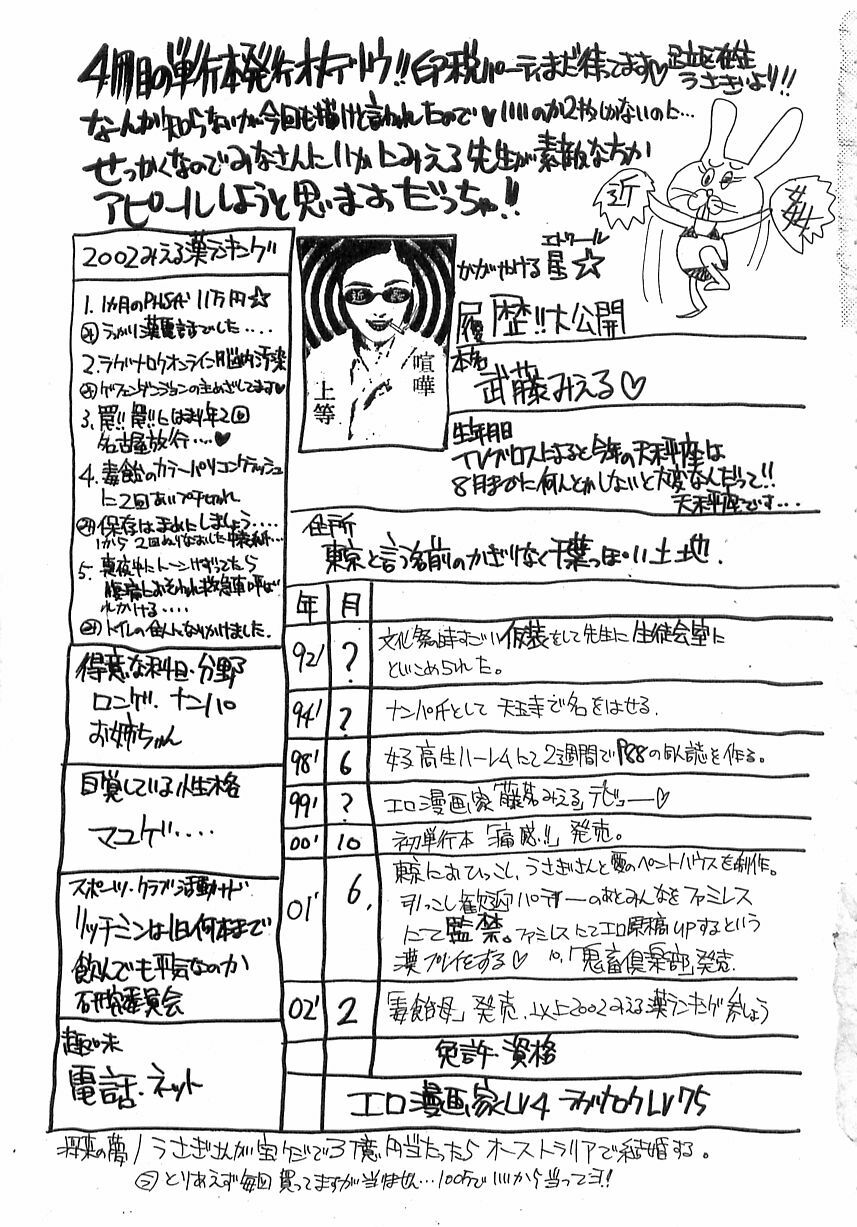 4冊目の単行本発行オメデトウ!! 印税パーティまだ待ってます♡ 足立区在住
うさぎより!!
なーんか知らないけど今回も描けと言われたので♥いいのか2枚しかないのに…
せっかくなのでみなさんにいかにみえる先生が素敵な方か
アピールしようと思いますだっちゃ!!
近
2002みえる薬ランキング
1. 1ヵ月のPHS代 11万円☆
2. ラグナロクオンライン脳内汚染
3. 罠!! 罠!! 
名古屋旅行…♥
4. 毒飴のカラーパソコンクラッシュ
に2回あいブチきれ
保存はまめにしましょう…
5. 真夜中にトーンけずってたら
腹痛におそわれ救急車呼ば
れかける….
トイレの住人になりかけました.
得意な科目・分野
ロンゲ. ナンパ
お姉ちゃん
自覚している性格
マユゲ….
スポーツ・クラブ活動など
リッチミンは1日何本まで
飲んでも平気なのか
研究委員会
趣味
電話・ネット
喧嘩
上等
エトワール
かがやける星☆
履歴!!大公開
本名
武藤みえる♡
生年月日
TVブロスによると今年の天秤座は
8月までに何とかしないと大変なんだって!!
天秤座です…
住所
東京と言う名前のかぎりなく千葉っぽい土地.
年 月
92' ? 文化祭の時すごい仮装をして先生に生徒会室に
とじこめられた。
94' ? ナンパ師として天王寺で名をはせる.
98' 6 女子高生ハーレムにて2週間でP88の同人誌を作る。
99' ? エロ漫画家「藤みえる」デビュー♡
00' 10 初単行本「痛感!!」発売。
01' 6. 東京におひっこし、うさぎさんと愛のペントハウスを制作。
引っこし歓迎パーティーのあとみんなをファミレス
にて監禁。ファミレスにてエロ原稿UPするという
漢プレイをする♡ 10.「鬼畜倶楽部」発売.
02' 2 「毒飴母」発売. 以上2002みえる薬ランキング参しょう
免許・資格
エロ漫画家LV4 ラグナロクLV75
将来の夢/うさぎさんが宝クジで3億円当たったらオーストラリアで結婚する。
とりあえず毎回買ってますが当りません…100万でいいから当ってヨ!!